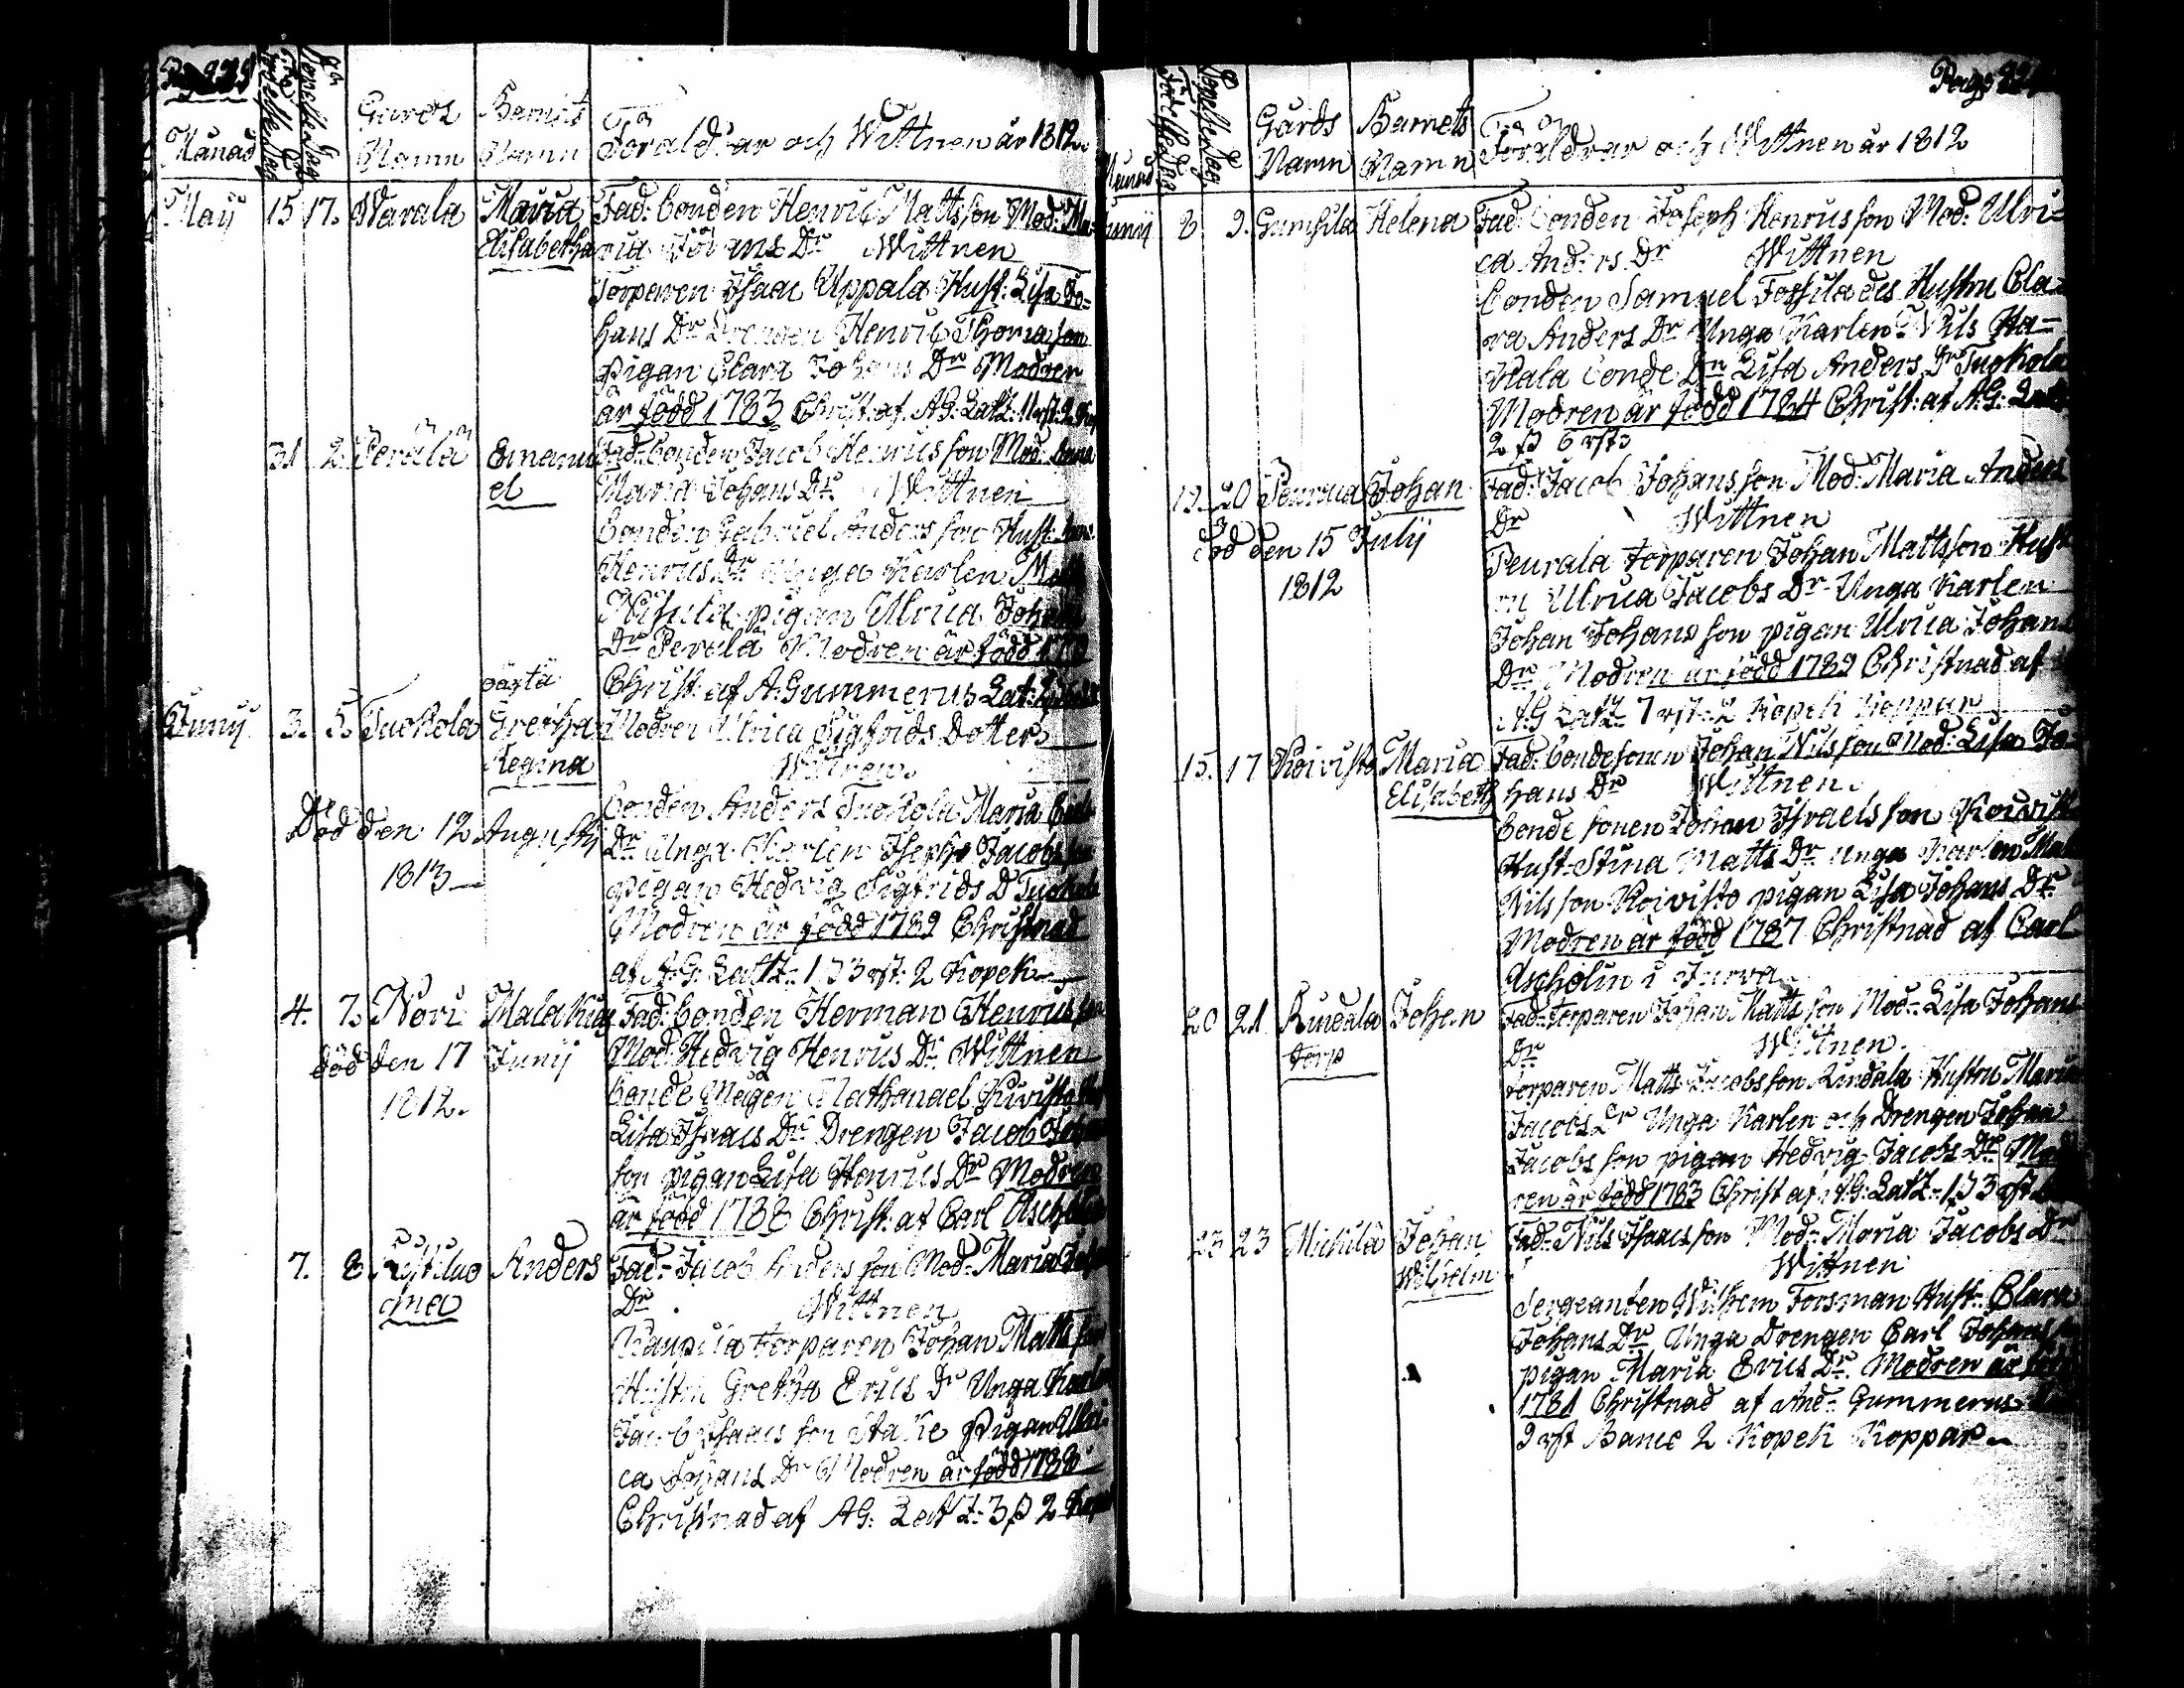 Månad Födelse Dag Dopelse Dag Gårds Namn Barnets Namn Föräldrar och Wittnen år 1812
Maij 15 17. Warala Maria Fad: bonden Henric Mattsson Mod: Ma-
Elisabetha ria Johans Dr Wittnen
Torparen Isaac Uppala Hust: Lisa Jo-
hans Dr Drengen Henric Thomasson
pigan Clara Johans Dr Modren
är född 1783 Christ: af A.G. Latz:
31 2. Perälä Emanu Fad: bonden Jacob Henricsson Mod: Anna
el Maria Johans Dr Wittnen
bonden Gabriel Andersson Hust:
Henrics Dr Unga Karlen Matts
pigan Ulrica Johans
Dr Perälä Modren är född
Christ: af A. Gummerus Lat:
oäxta
Junij 3. 5. Tuokola Gretha Modren Ulrica Sigfrids Dotter
Regina Wittnen
bonden Anders Tuokola Maria
Död den 12 Augustij Dr Unga Karlen Joseph Jacobsson
1813 pigan Hedvig Sigfrids D Tuokola
Modren är född 1789 Christnad
af A.G. Lattz: 1 ß 3 rst: 2 Kopek
4. 7. Nori Malakias Fad: bonden Herman Henricsson
död den 17 Junij Mod: Hedvig Henrics Dr Wittnen
1812. bonde Mågen Nathanael Koivisto
Lisa Isaacs Dr Drengen Jacob Johans
son pigan Lisa Henrics Dr Modren
är född 1788 Christ: af Carl Ascholin
7. 8 Anders Fad: Jacob Andersson Mod: Maria
Dr Wittnen
Kaupila torparen Johan Mattsson
Hustru Gretha Erics Dr Unga Karlen
Jacob Isaacs son pigan Ulri-
ca Johans Dr Modren är född
Christnad af AG: Latz: 3 ß 2 Kopek
Pag:
Månad Födelse Dag Dopelse Dag Gårds Namn Barnets Namn Föräldrar och Wittnen år 1812
Junij 8 9. Gumsila Helena Fad: bonden Joseph Henricsson Mod: Ulri-
ca Anders Dr Wittnen
bonden Samuel Fossila des Hustru Cla-
ra Anders Dr Unga Karlen Nils Ha-
kala bonde Dr Lisa Anders Dr Tuokola
Modren är född 1784 Christ: af A.G:
2 ß 6 rst:
20 Peurala Johan Fad: Jacob Johansson Mod: Maria Anders
Dr Wittnen
död den 15 Julij Peurala torparen Johan Mattsson Hust
1812 ru Ulrica Jacobs Dr Unga Karlen
Johan Johansson pigan Ulrica Johans
Dr Modren är född 1789 Christnad af
A.G Latz: 7 rst: 2 Kopek Koppar
15. 17 Koivisto Maria Fad: bondesonen Johan Nilsson Mod: Lisa Jo-
Elisabeth hans Dr Wittnen.
bonde sonen Johan Israelsson Koivisto
Hust: Stina Matts Dr unga Karlen
Nilsson Koivisto pigan Lisa Johans Dr
Modren är född 1787 Christnad af Carl
Ascholin i Jurva
20 21 Rindala Johan Fad: torparen Johan Mattsson Mod: Lisa Johans
torp Dr Wittnen.
torparen Matts Jacobsson Rindala Hustru Maria
Jacobs Dr Unga Karlen och Drengen Johan
Jacobsson pigan Hedvig Jacobs Dr Mod
ren är född 1783 Christ af A.G: Latz: 1 ß 3 rst
23 23 Michila Johan Fad: Nils Isaacsson Mod: Maria Jacobs Dr
Wilhelm Wittnen
Sergeanten Wilhem Forsman Hust: Clara
Johans Dr Unga Drengen Carl Johansson
pigan Maria Erics Dr. Modren är född
1781 Christnad af And: Gummerus
9 rst Banco 2 Kopek Koppar